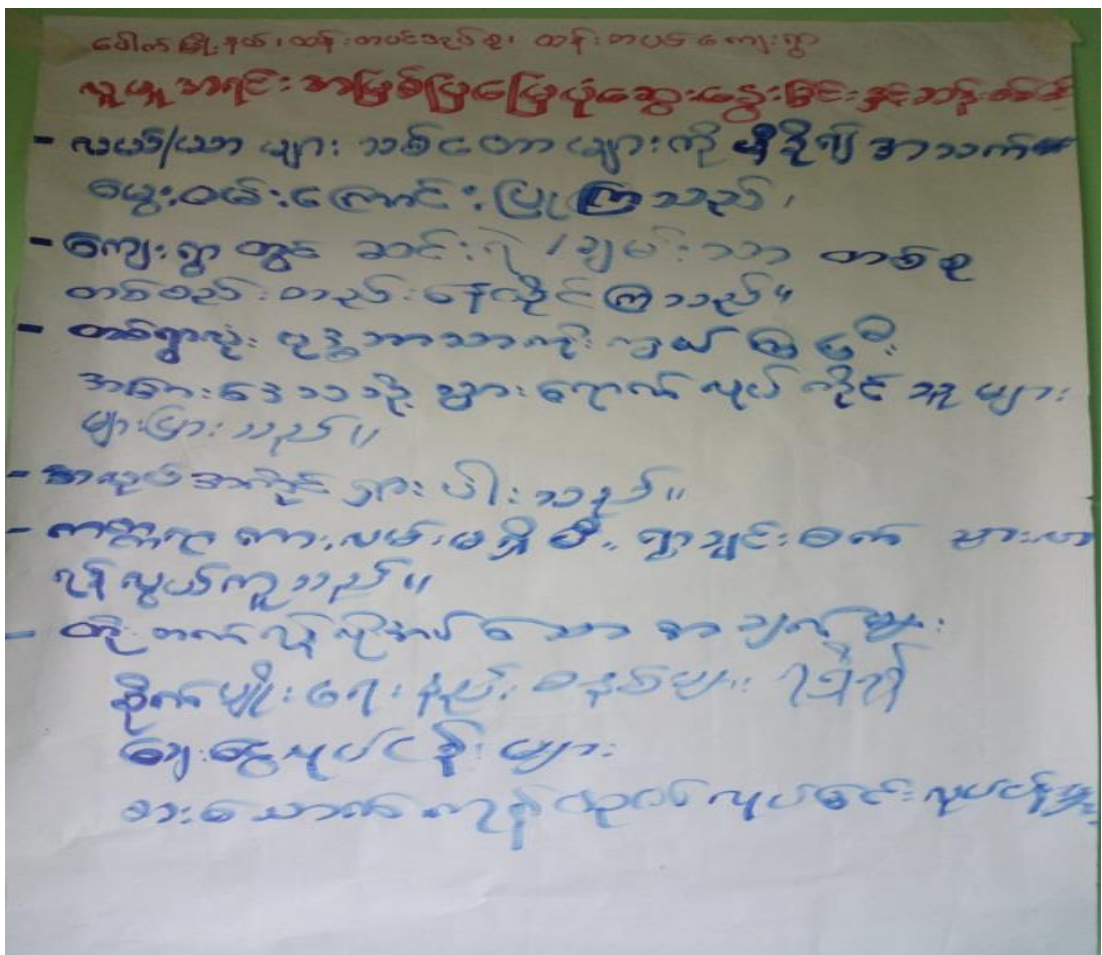 ပေါက်မြို့နယ်၊ ထန်းတပင်အုပ်စု၊ ထန်းတပင်ကျေးရွာ
လူမှုအရင်းအမြစ်ပြမြေပုံဆွေးနွေးခြင်းနှင့်
- လယ်/ယာများ သစ်တောများကို မှီခို၍ အသက်
မွေးဝမ်းကြောင်းပြုကြသည်၊
- ကျေးရွာတွင် ဆင်းရဲ/ချမ်းသာ တစ်စု
တစ်စည်းတည်းနေထိုင်ကြသည်။
- တစ်ရွာလုံး ဗုဒ္ဓဘာသာကိုးကွယ်ကြပြီး
အခြားဒေသသို့ သွားရောက်လုပ်ကိုင်သူများ
များပြားသည်။
- အလုပ်အကိုင်ရှားပါးသည်။
- ကတ္တရာကားလမ်းမရှိ၍ ရွာချင်းဆက် သွားလာ
ရန်လွယ်ကူသည်။
- တိုးတက်ရန်လိုအပ်သောအချက်များ
စိုက်ပျိုးရေးနည်းစနစ်များ ရရှိ၍
ချေးငွေလုပ်ငန်းများ
စားသောက်ကုန်ထုတ်လုပ်ခြင်းလုပ်ငန်းများ